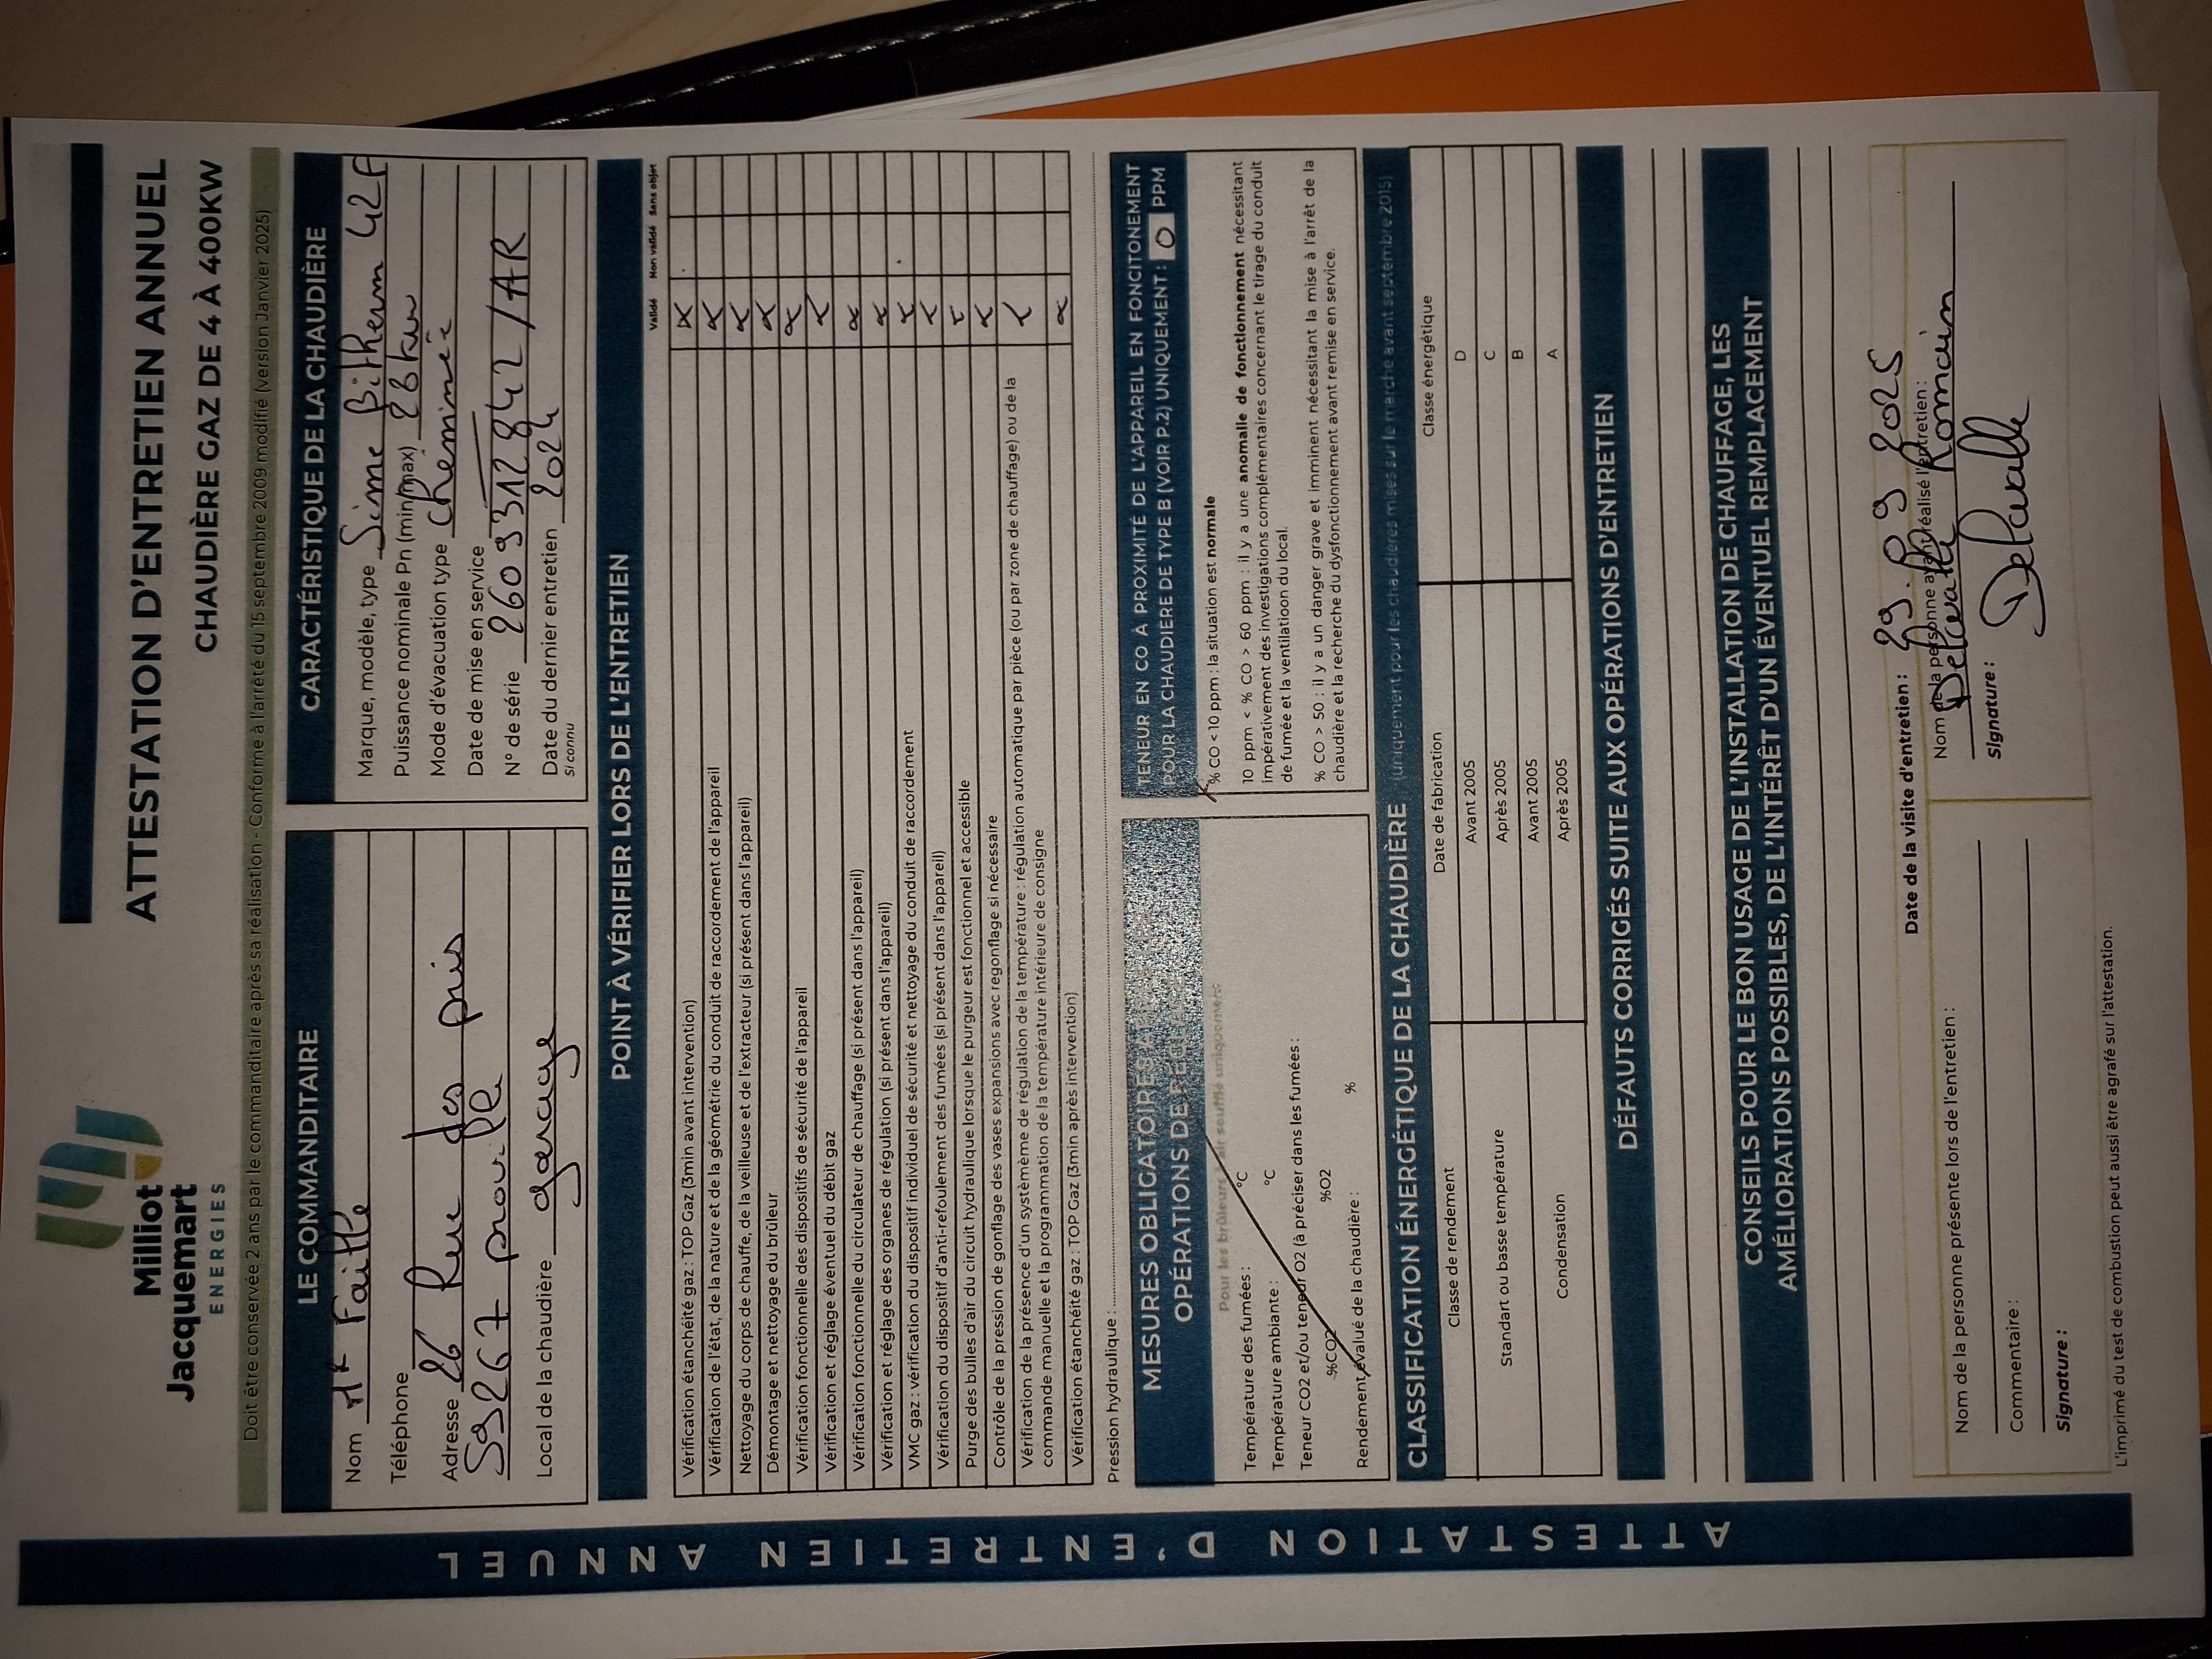 Milliot
Jacquemart
ENERGIES
ATTESTATION D'ENTRETIEN ANNUEL
CHAUDIÈRE GAZ DE 4 À 400KW
Doit être conservée 2 ans par le commanditaire après sa réalisation - Conforme à l'arrêté du 15 septembre 2009 modifié (version Janvier 2025)
LE COMMANDITAIRE
Nom Mr Faille
Téléphone
Adresse 26 Rue des pris
59267 proville
Local de la chaudière garage
CARACTÉRISTIQUE DE LA CHAUDIÈRE
Marque, modèle, type Sime Bitherm 42F
Puissance nominale Pn (min/max) 28kw
Mode d'évacuation type Cheminée
Date de mise en service
N° de série 26093312842/AR
Date du dernier entretien 2024
si connu
POINT À VÉRIFIER LORS DE L'ENTRETIEN
Validé Non validé Sans objet
Vérification étanchéité gaz : TOP Gaz (3min avant intervention) X
Vérification de l'état, de la nature et de la géométrie du conduit de raccordement de l'appareil X
Nettoyage du corps de chauffe, de la veilleuse et de l'extracteur (si présent dans l'appareil) X
Démontage et nettoyage du brûleur X
Vérification fonctionnelle des dispositifs de sécurité de l'appareil X
Vérification et réglage éventuel du débit gaz X
Vérification fonctionnelle du circulateur de chauffage (si présent dans l'appareil) X
Vérification et réglage des organes de régulation (si présent dans l'appareil) X
VMC gaz : vérification du dispositif individuel de sécurité et nettoyage du conduit de raccordement X
Vérification du dispositif d'anti-refoulement des fumées (si présent dans l'appareil) X
Purge des bulles d'air du circuit hydraulique lorsque le purgeur est fonctionnel et accessible X
Contrôle de la pression de gonflage des vases expansions avec regonflage si nécessaire X
Vérification de la présence d'un systèmème de régulation de la température : régulation automatique par pièce (ou par zone de chauffage) ou de la
commande manuelle et la programmation de la température intérieure de consigne X
Vérification étanchéité gaz : TOP Gaz (3min après intervention) X
Pression hydraulique :
MESURES OBLIGATOIRES
OPÉRATIONS DE
Pour les brûleurs à air soufflé uniquement
Température des fumées : °C
Température ambiante : °C
Teneur CO2 et/ou teneur O2 (à préciser dans les fumées :
%CO2 %O2
Rendement évalué de la chaudière : %
TENEUR EN CO À PROXIMITÉ DE L'APPAREIL EN FONCITONEMENT
POUR LA CHAUDIÈRE DE TYPE B (VOIR P.2) UNIQUEMENT : 0 PPM
X % CO < 10 ppm : la situation est normale
10 ppm < % CO > 60 ppm : il y a une anomalie de fonctionnement nécessitant
impérativement des investigations complémentaires concernant le tirage du conduit
de fumée et la ventilatioon du local.
% CO > 50 : il y a un danger grave et imminent nécessitant la mise à l'arrêt de la
chaudière et la recherche du dysfonctionnement avant remise en service.
CLASSIFICATION ÉNERGÉTIQUE DE LA CHAUDIÈRE (uniquement pour les chaudières mises sur le marché avant septembre 2015)
Classe de rendement Date de fabrication Classe énergétique
Standart ou basse température
Avant 2005 D
Après 2005 C
Condensation
Avant 2005 B
Après 2005 A
DÉFAUTS CORRIGÉS SUITE AUX OPÉRATIONS D'ENTRETIEN
CONSEILS POUR LE BON USAGE DE L'INSTALLATION DE CHAUFFAGE, LES
AMÉLIORATIONS POSSIBLES, DE L'INTÉRÊT D'UN ÉVENTUEL REMPLACEMENT
Date de la visite d'entretien : 29.09 2025
Nom de la personne présente lors de l'entretien :
Commentaire :
Signature :
Nom de la personne ayant réalisé l'entretien :
Delvalle Romain
Signature :
Delvalle
L'imprimé du test de combustion peut aussi être agrafé sur l'attestation.
ATTESTATION D'ENTRETIEN ANNUEL